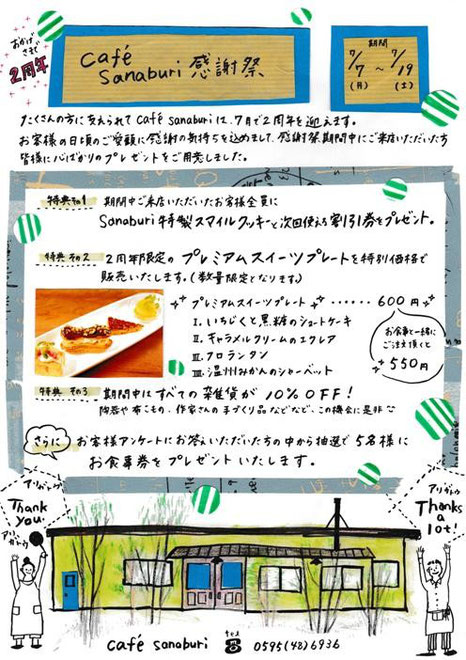 おかげさまで
2周年
Café
Sanaburi 感謝祭
期間
7/7 ～ 7/19
(月) (土)
たくさんの方に支えられて Café sanaburiは、7月で2周年を迎えます。
お客様の日頃のご愛顧に感謝の気持ちを込めまして、感謝祭期間中にご来店いただいた方
皆様に心ばかりのプレゼントをご用意しました。
特典その1 期間中ご来店いただいたお客様全員に
Sanaburi特製スマイルクッキーと次回使える割引券をプレゼント。
特典 その2 2周年限定の プレミアムスイーツプレートを特別価格で
販売いたします。(数量限定となります。)
プレミアムスイーツプレート ‥‥‥ 600円
Ⅰ. いちじくと黒糖のショートケーキ
Ⅱ. キャラメルクリームのエクレア
Ⅲ. フロランタン
Ⅲ. 温州みかんのシャーベット
お食事と一緒に
ご注文頂くと
550円
特典 その3 期間中はすべての雑貨が 10%OFF!
陶器や布こもの、作家さんの手づくり品などなど、この機会に是非
さらに お客様アンケートにお答えいただいた方の中から抽選で5名様に
お食事券をプレゼントいたします。
アリガトウ
Thank
you.
アリガトウ
アリガトウ
Thanks
a
lot!
café sanaburi tel ☎ 0595(48)6936